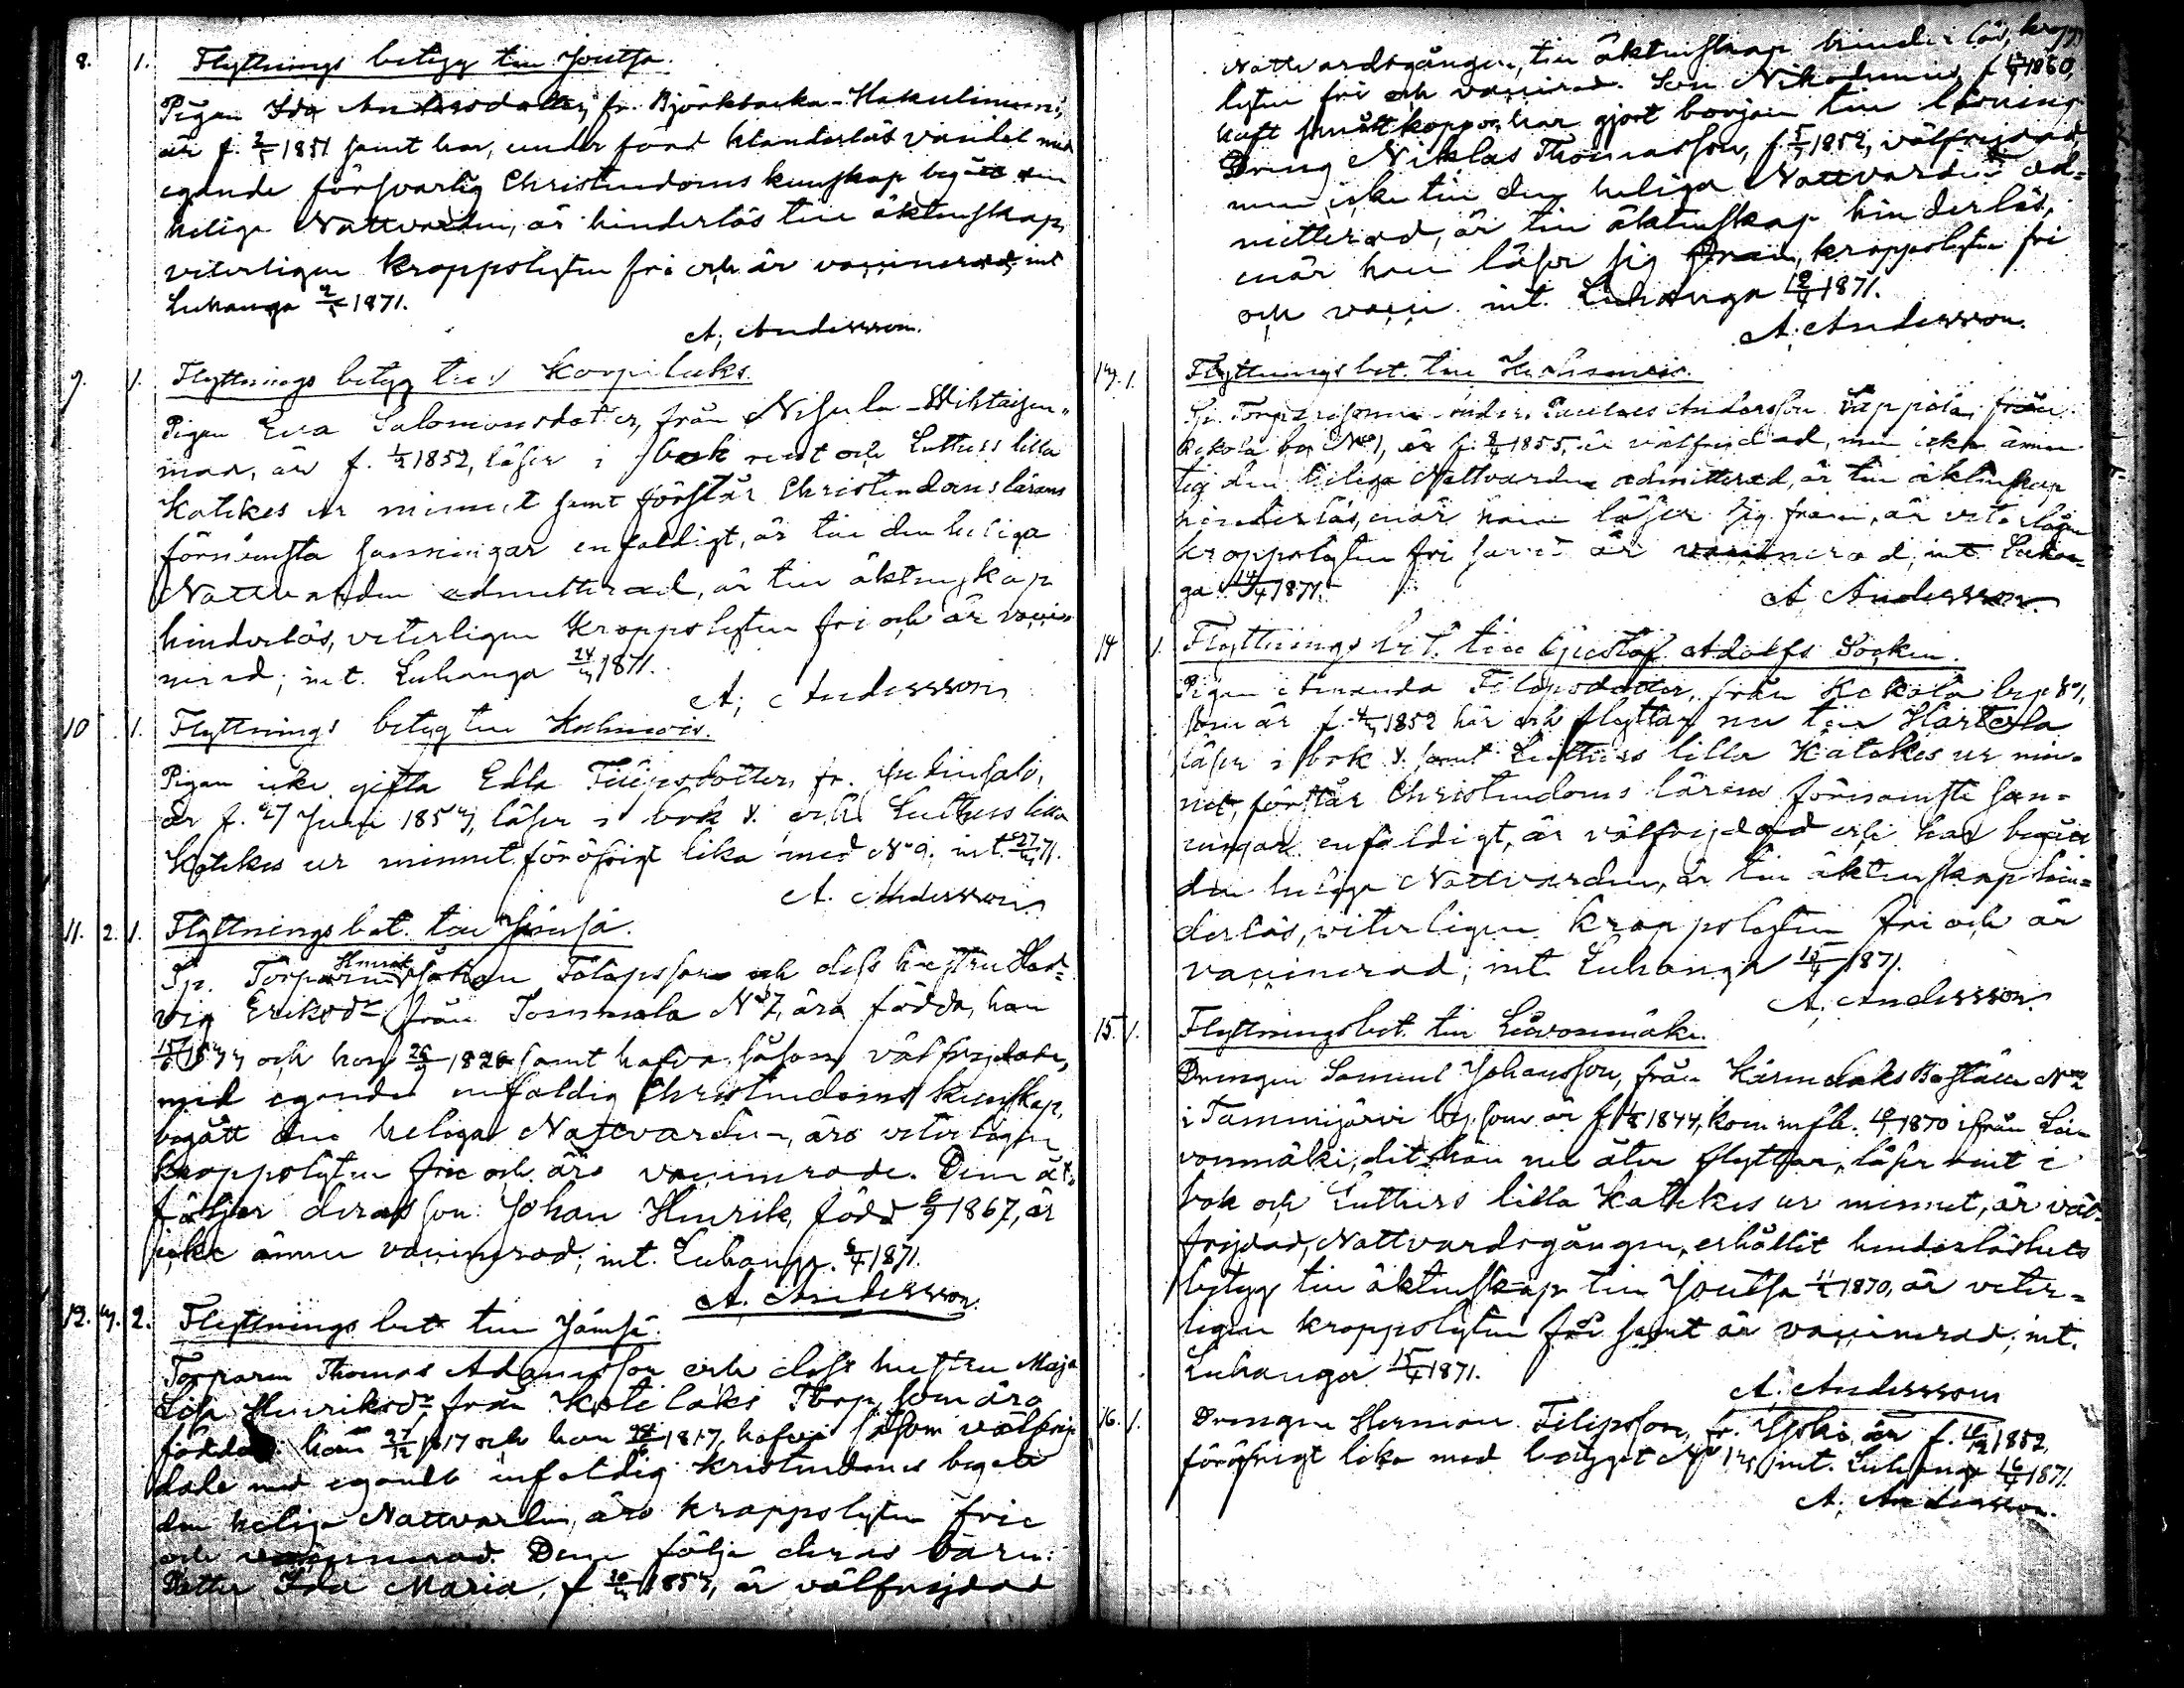 8. 1. Flyttnings betygg till Joutsa.
Pigan Ida Andersdotter, fr. Björkbacka-Hakulinen,
är f. 2/5 1851 samt har, under förd klanderlös vandel med
egande försvarlig Christendoms kunskap begått den
heliga Nattvarden, är hinderlös till äktenskap,
veterligen kroppslyten fri och är vaccinerad; int
Luhanga 1871.
A. Andersson.
9. 1. Flyttnings betyg till Korpilaks.
Pigan Eva Salomonsdotter, från Nisula-
mad, är f. 1852, läser i bok rent och Luthers lilla
Katekes ur minnet samt förstår Christendomslärans
förnämsta sanningar enfaldigt, är till den heliga
Nattvarden admitterad, är till äktenskap
hinderlös, veterligen kroppslyten fri och är vacci-
nerad; int. Luhanga 1871.
A. Andersson
10 1. Flyttnings betyg till Kuhmois.
Pigan icke gifta Edla Filipsdotter, fr.
är f. 27 Juni 1853, läser i bok v. och Luthers lilla
Katekes ur minnet, föröfrigt lika med No 9. int. 71.
A. Andersson
11. 2. 1. Flyttningsbet. till Jämsä.
Sp. Torparen Henrik Johan Filipsson och dess hustru Hed-
vig Eriksdr från Tommola No 7, äro födda, han
och hon 26/2 1826 samt hafva såsom välfrejdade,
med egande enfaldig Christendoms kunskap,
begått den heliga Nattvarden, äro veterligen
kroppslyten frie och äro vaccinerade. Dem åt-
följer deras son: Johan Henrik, född 1867, är
icke ännu vaccinerad; int. Luhanga 6/4 1871.
A. Andersson.
12. 3. 2. Flyttnings bet. till Jämsä.
Torparen Thomas Adamsson och dess hustru Maja
Lisa Henriksdr från Kotilaks Torp, som äro
födda: han 27/12 1817 och hon 1817, hafva såsom välfrej-
dade med egande enfaldig kristendoms begått
den heliga Nattvarden, äro kroppslyten frie
och vaccinerad. Dem följa deras barn:
Dotter Ida Maria, f. 1853, är välfrejdad
Nattvardsgången, till äktenskap hinderlös, kropps
lyten fri och vaccinerad. Son Nikodemus f. 1860,
haft smittkoppor, har gjort början till läsning
Dreng Niklas Thomasson, f. 1852, välfrejdad,
men icke till den heliga Nattvarden ad-
mitterad, är till äktenskap hinderlös,
enär han läser sig fram, kroppslyten fri
och vacci. int. Luhanga 1871.
A. Andersson.
13. 1. Flyttningsbet. till Kuhmois.
Sp. Torparesonen Andersson från
Kekola by No 1, är f. 1855, är välfrejdad, men icke ännu
till den heliga Nattvarden admitterad, är till äktenskap
hinderlös, enär han läser sig fram, är veterligen
kroppslyten fri samt är vaccinerad; int. Luhan-
ga 14/4 1871.
A Andersson
14 1. Flyttnings bet. till Gustaf Adolfs Socken.
Pigan Amanda Filipsdotter, från Kekola by No 1,
som är f. 1852 här och flyttar nu till Hartola
läser i bok v. samt Luthers lilla Katekes ur min-
net, förstår Christendoms lärans förnämste san-
ningar enfaldigt, är välfrejdad och har begått
den heliga Nattvarden, är till äktenskap hin-
derlös, veterligen kroppslyten fri och är
vaccinerad; int. Luhanga 15/4 1871.
A. Andersson
15. 1. Flyttningsbet. till Leivonmäki.
Drengen Samuel Johansson, från Boställe No 2
i Tammijärvi by, som är f. 1844, kom infl. 1870 ifrån Lei-
vonmäki, dit han nu åter flyttar, läser rent i
bok och Luthers lilla Katekes ur minnet, är väl-
frejdad, Nattvardsgången, erhållit hinderlöshets
betyg till äktenskap till Joutsa 1870, är veter-
ligen kroppslyten fri samt är vaccinerad; int.
Luhanga 15/4 1871.
A. Andersson
16. 1. Drengen Herman Filipsson, fr. är f. 1852,
föröfrigt lika med betyget No 13, int. Luhanga 16/4 1871.
A. Andersson.